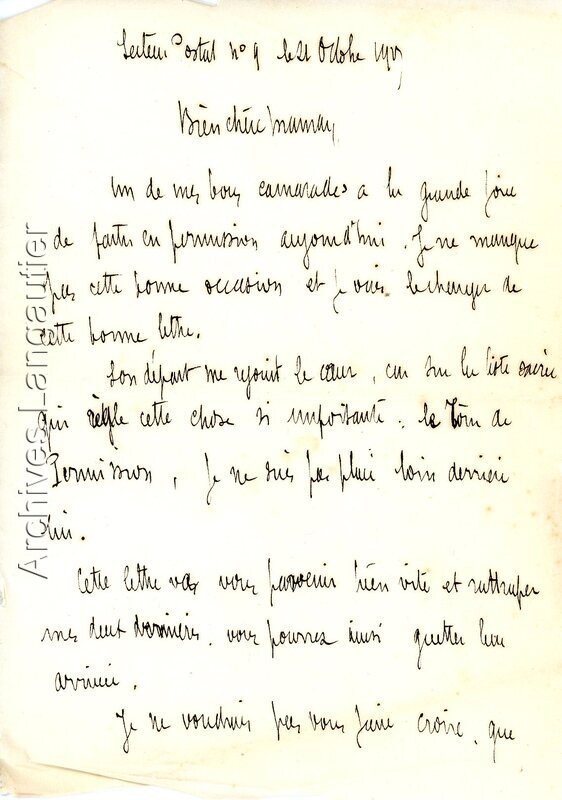 Secteur Postal n° 9 le 21 Octobre 191
Bien chère maman,
Un de mes bons camarades a la grande joie
de partir en permission aujourd'hui. Je ne manque
pas cette bonne occasion et je vais le charger de
cette bonne lettre.
Son départ me réjouit le cœur, car sur la liste sacrée
qui règle cette chose si importante : le Tour de
Permission, je ne suis pas placé loin derrière
lui.
Cette lettre va vous parvenir bien vite et rattraper
mes deux dernières, vous pourrez ainsi guetter leur
arrivée.
Je ne voudrais pas vous faire croire, que
Archives Langautier